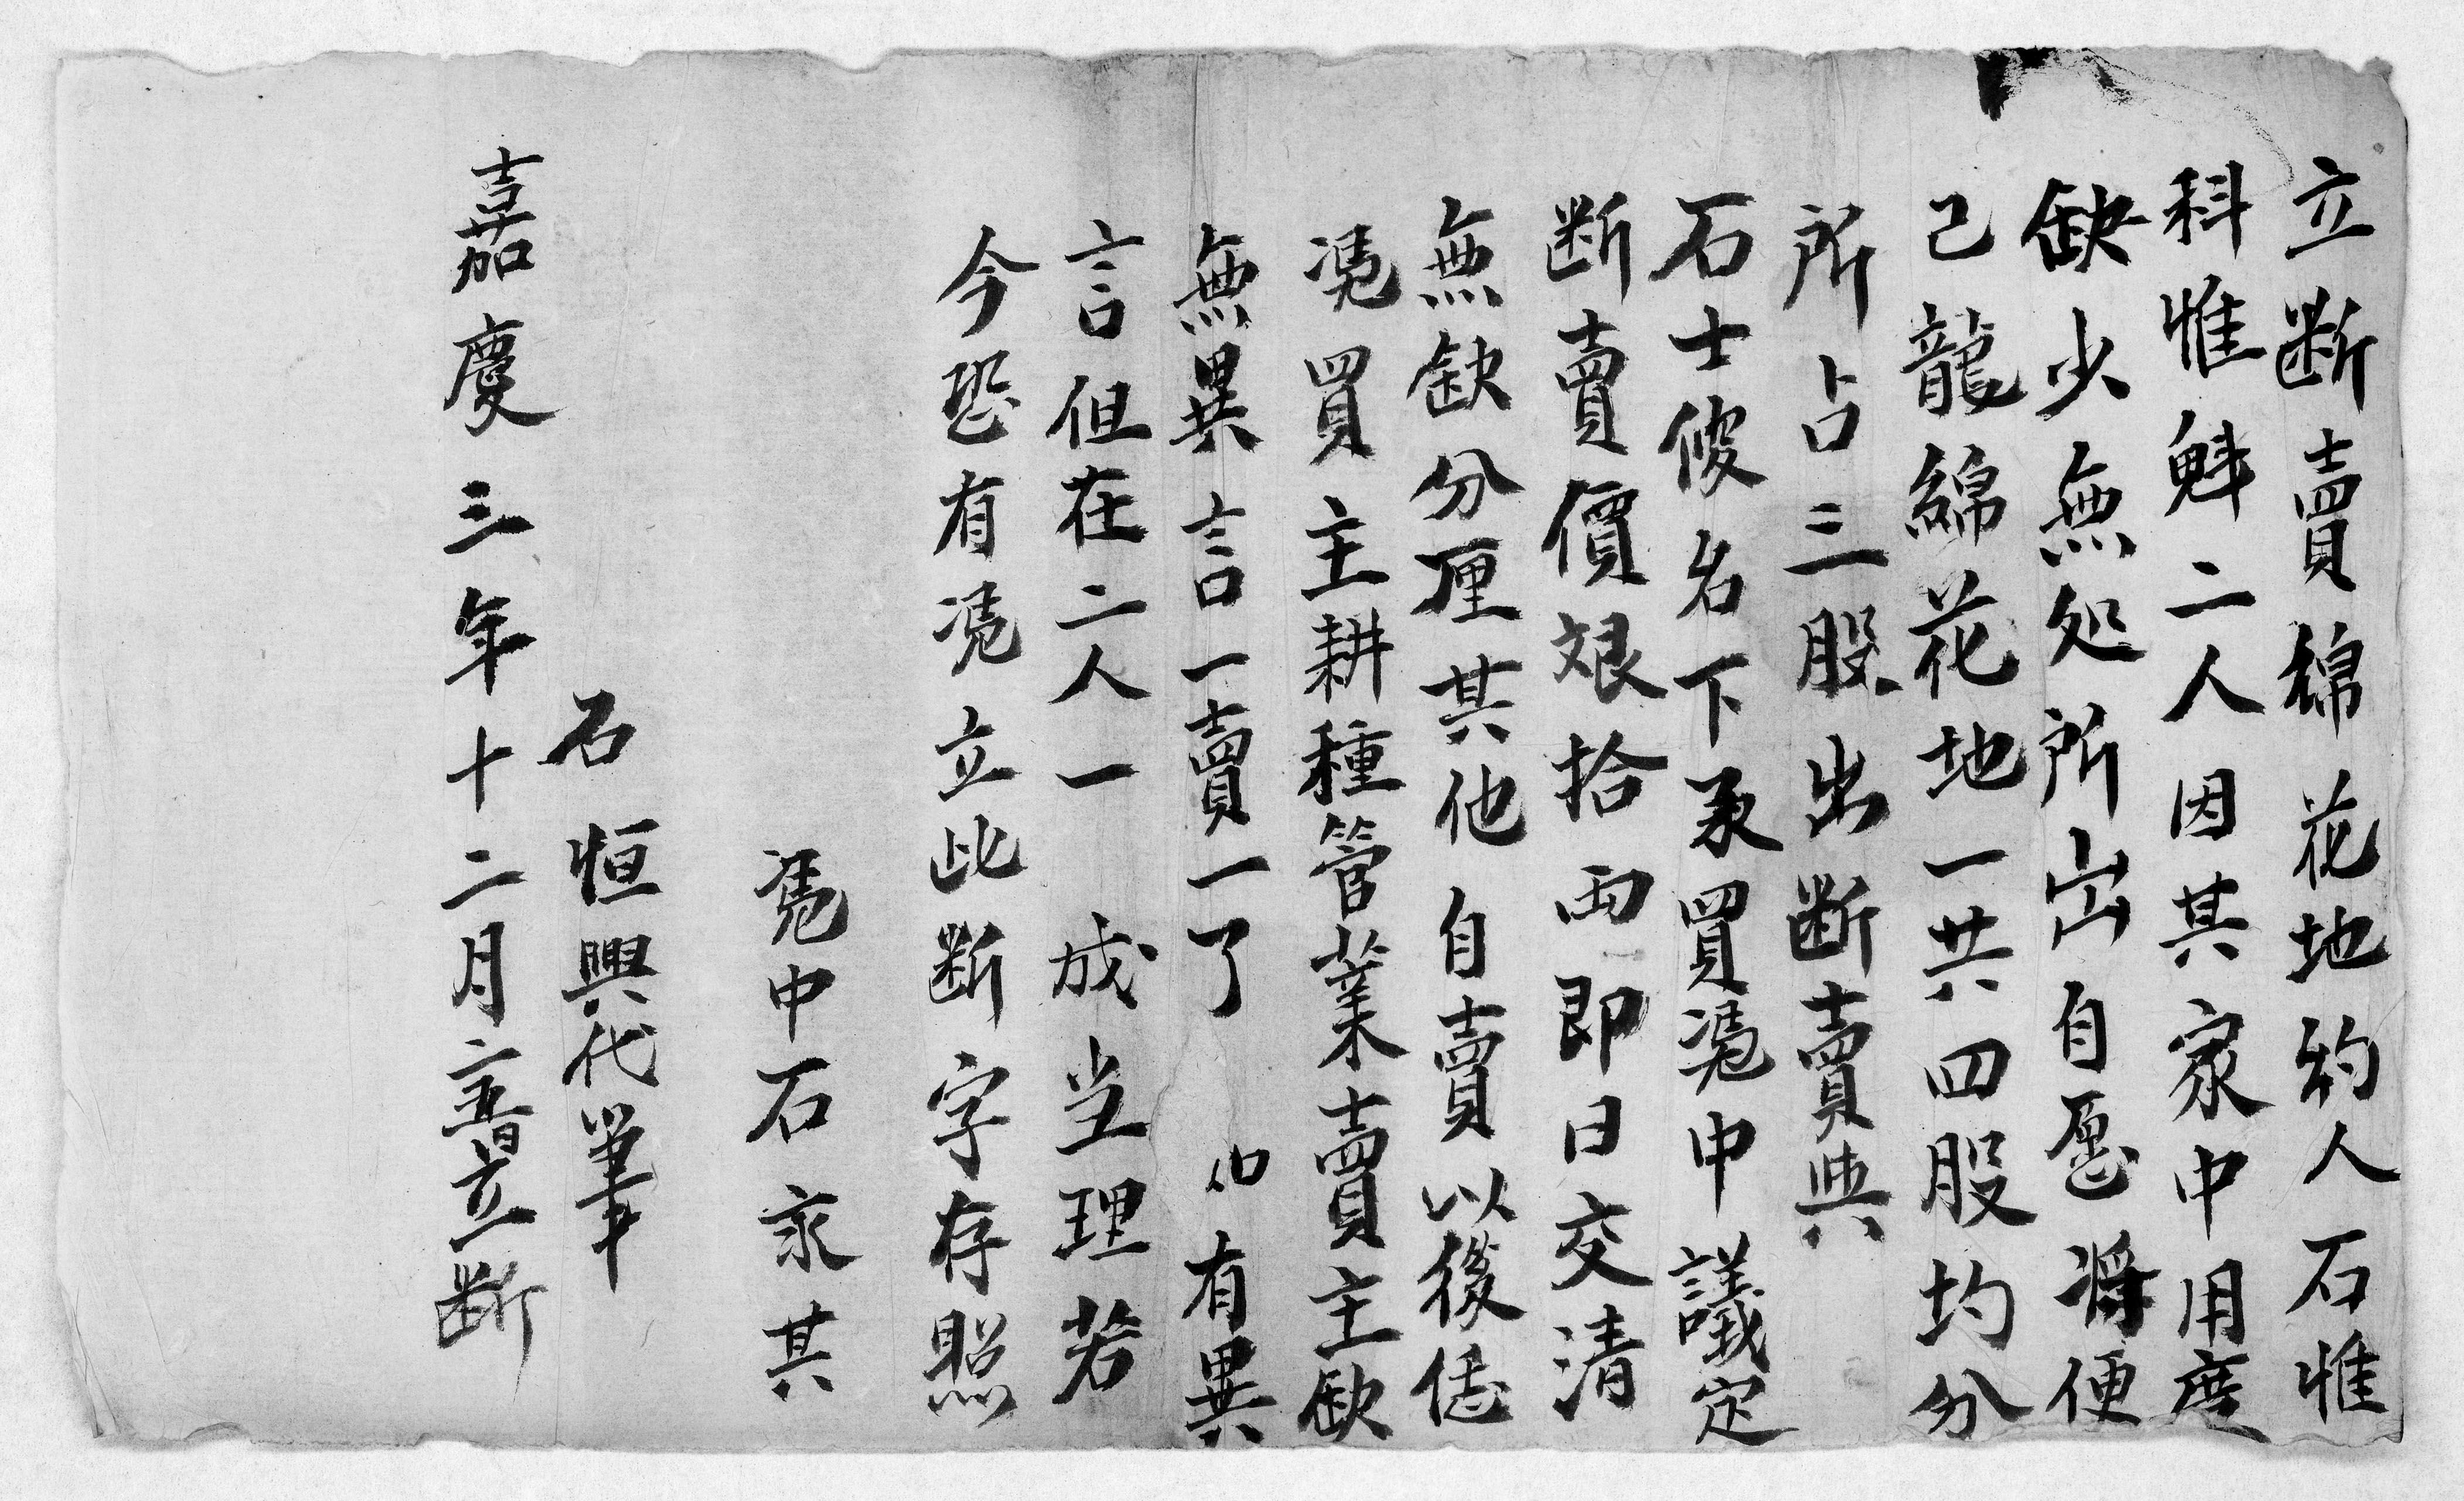 立断賣綿花地約人石惟
科惟魁二人因其家中用度
缺少無処所出自愿将便
己龍綿花地一共四股均分
所占三股出断賣與
石士俊名下承買凴中議定
断賣價艮拾両即日交清
無缺分厘其他自賣以後恁
凴買主耕種管業賣主缺
無異言一賣一了如有異
言但在二人一成当理若
今恐有凴立此断字存照
凴中石永其
石恒興代筆
嘉慶三年十二月立断